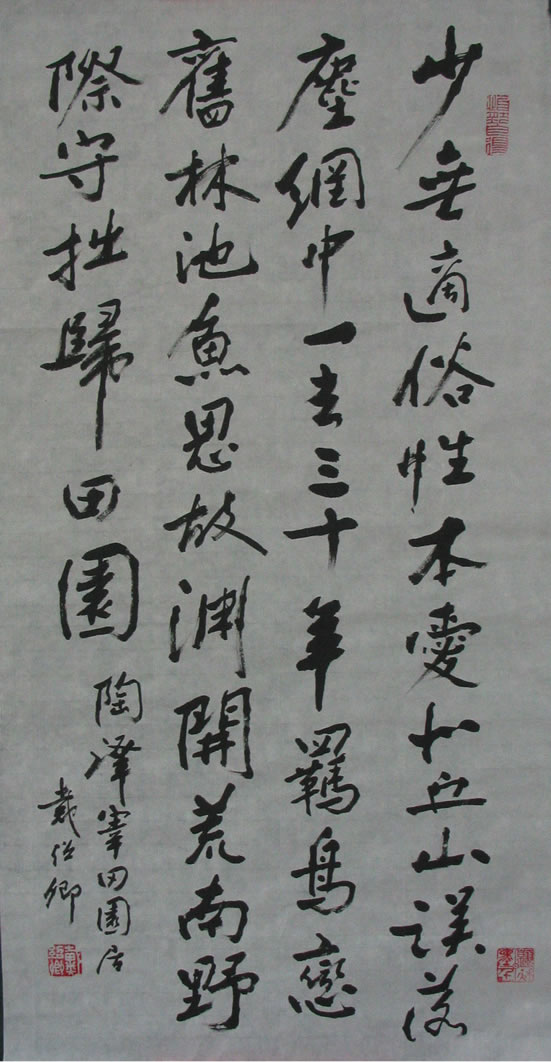 少無適俗性本愛丘山誤落
塵網中一去三十年羈鳥戀
舊林池魚思故淵開荒南野
際守拙歸田園
陶澤宰田園居
戴卿